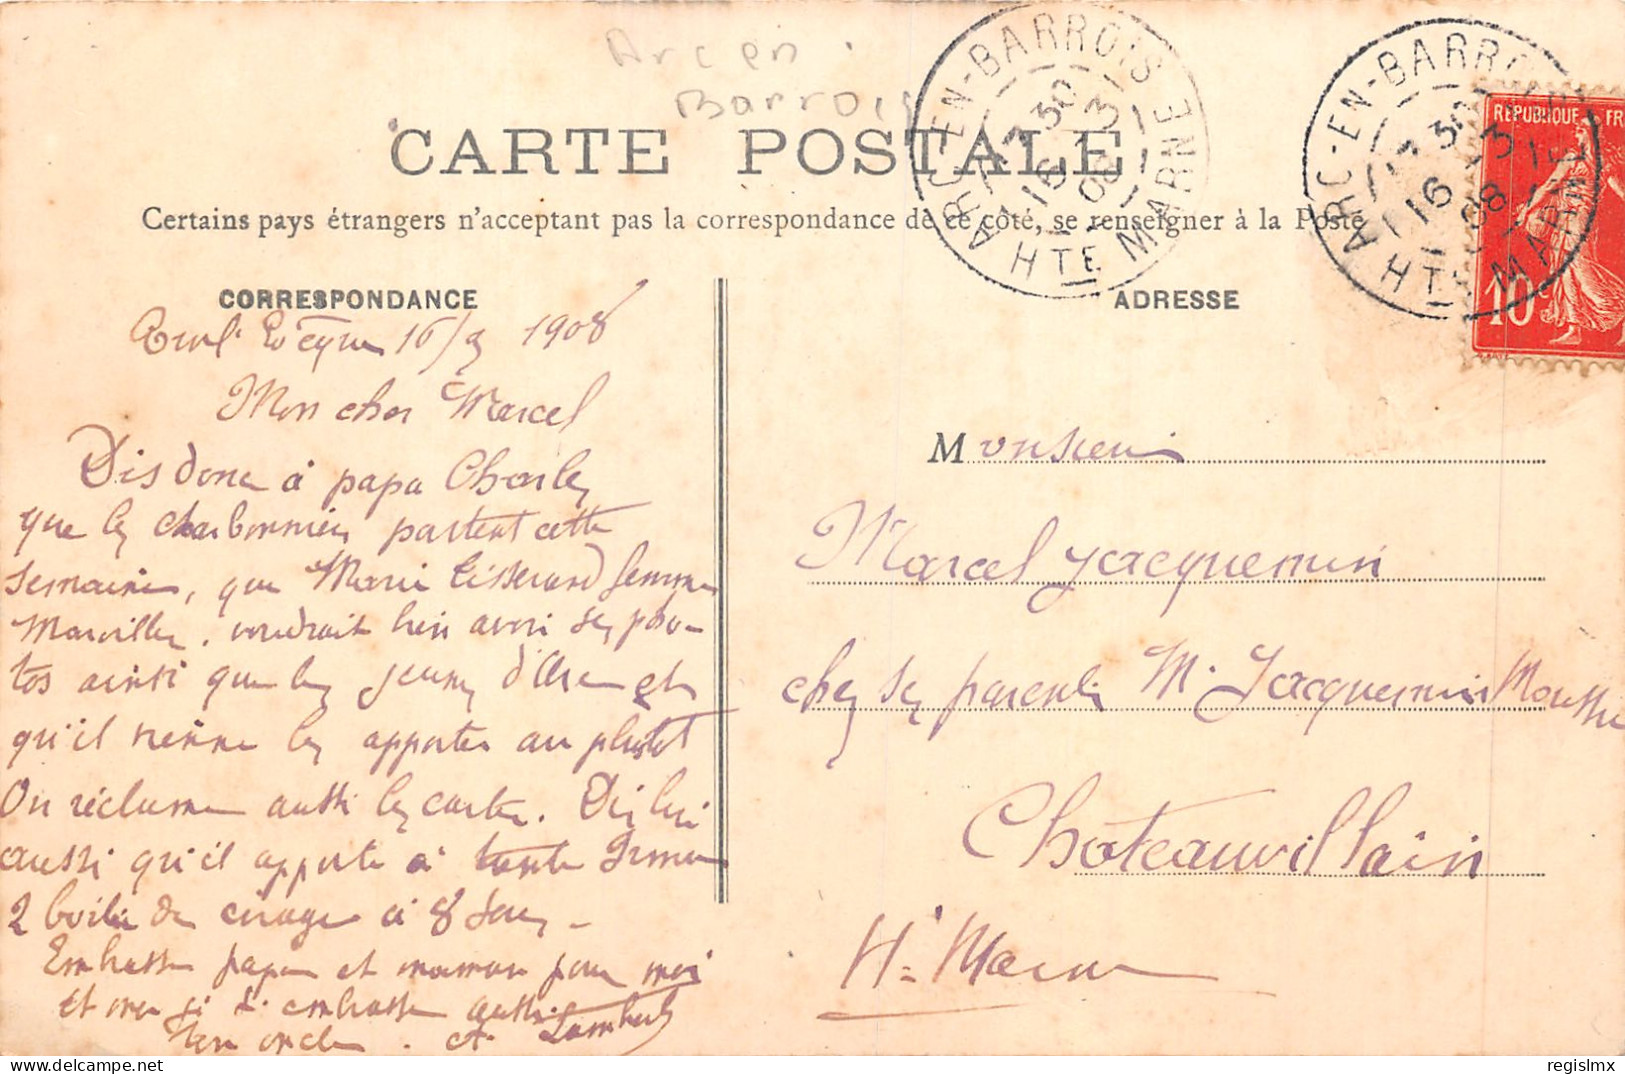 Arc en
Barrois
ARC-EN-BARROIS
17 30
16 -3
08
HTE MARNE
ARC-EN-BARROIS
17 30
16 -3
08
HTE MARNE
RÉPUBLIQUE FR
10 c
CARTE POSTALE
Certains pays étrangers n'acceptant pas la correspondance de ce côté, se renseigner à la Poste
CORRESPONDANCE
16/3 1908
Mon cher Marcel
Dis donc à papa Charles
que les charbonniers partent cette
semaine, que Marie Tisserand femme
voudrait bien avoir ses pho-
tos ainsi que les jeunes d'Arc et
qu'il vienne les apporter au plustôt
On réclame aussi les cartes. Dis lui
aussi qu'il apporte à tante Irma
2 boites de cirage à 8 sous -
Embrasse papa et maman pour moi
embrasse aussi
Ton oncle. A. Lambert
ADRESSE
Monsieur
Marcel Jacquemin
chez ses parents M. Jacquemin
Chateauvillain
Hte Marne
regislmx